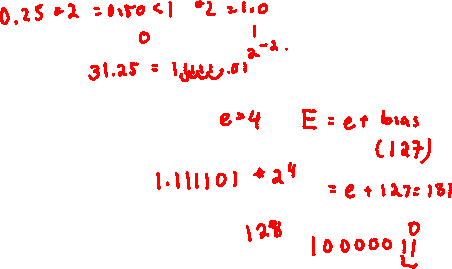 0.25 * 2 = 0.50 < 1 * 2 = 1.0
0 1
2^-2.
31.25 = 11111.01
e=4 E = e + bias
(127)
1.111101 * 2^4 = e + 127 = 131
128 0
10000011